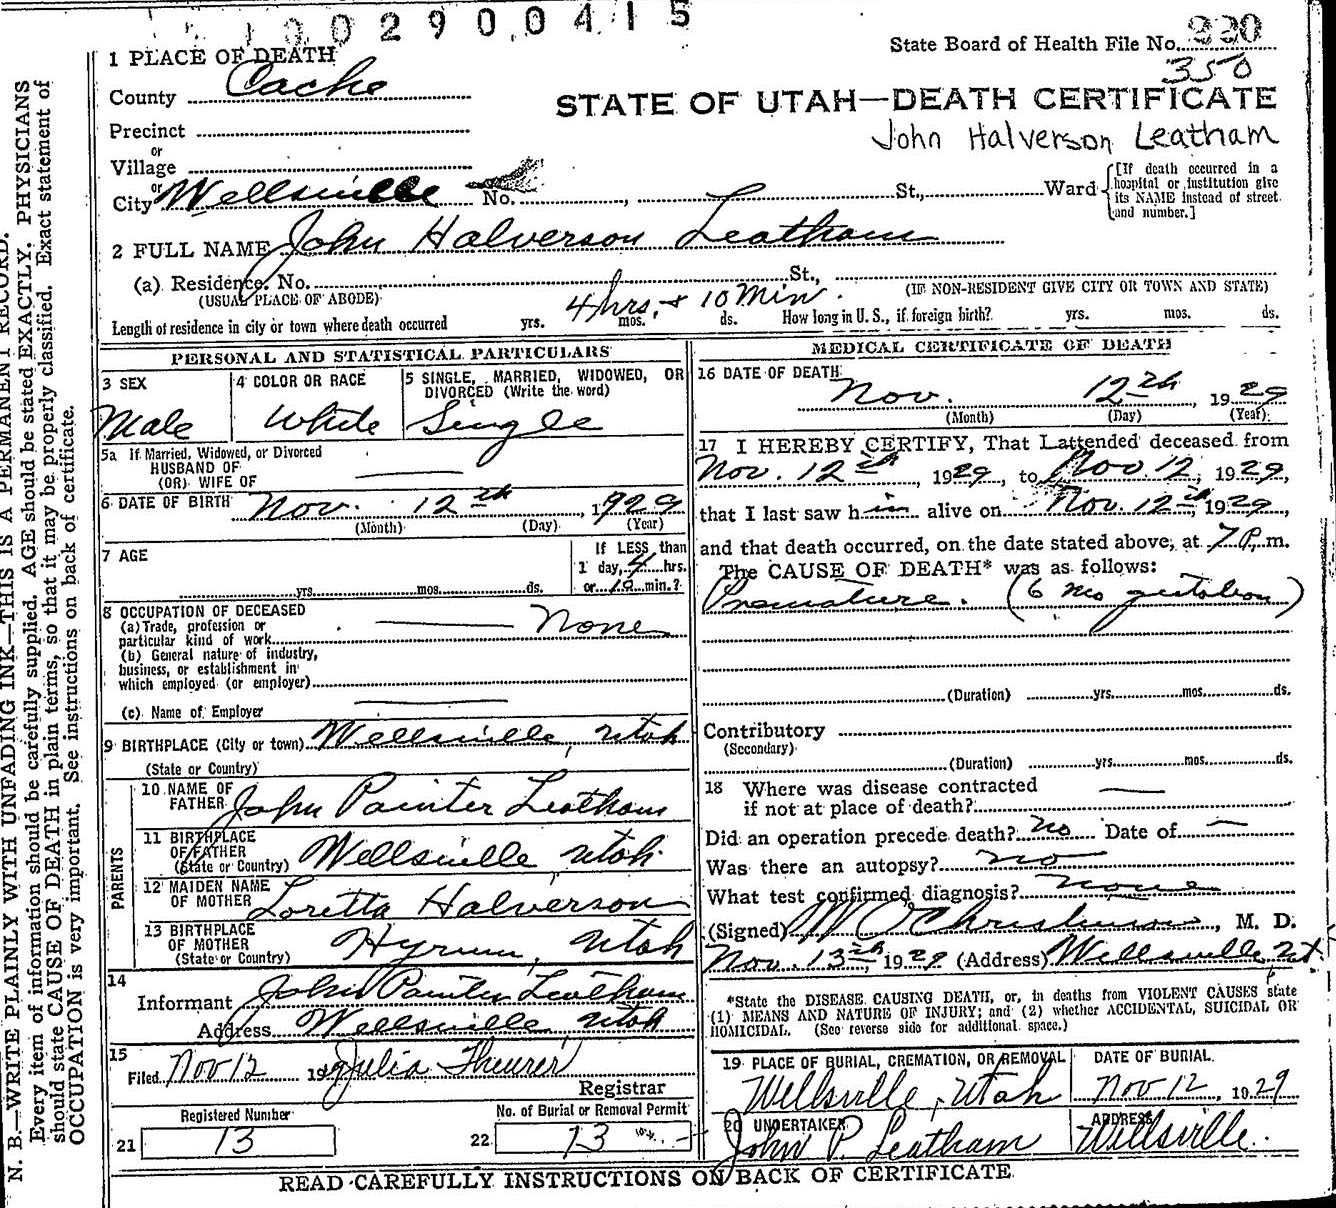 0 0 2 9 0 0 4 1 5
State Board of Health File No. 220
350
1 PLACE OF DEATH
County Cache
STATE OF UTAH—DEATH CERTIFICATE
John Halverson Leatham
Precinct
or
Village
or
City Wellsville No. , St., Ward
[If death occurred in a hospital or institution give its NAME instead of street and number.]
2 FULL NAME John Halverson Leatham
(a) Residence. No. St.,
(USUAL PLACE OF ABODE) (IF NON-RESIDENT GIVE CITY OR TOWN AND STATE)
4 hrs. & 10 Min.
Length of residence in city or town where death occurred yrs. mos. ds. How long in U. S., if foreign birth? yrs. mos. ds.
PERSONAL AND STATISTICAL PARTICULARS
3 SEX
Male
4 COLOR OR RACE
White
5 SINGLE, MARRIED, WIDOWED, OR DIVORCED (Write the word)
Single
5a If Married, Widowed, or Divorced
HUSBAND OF
(OR) WIFE OF
6 DATE OF BIRTH Nov. 12th, 1929
(Month) (Day) (Year)
7 AGE
yrs. mos. ds.
If LESS than
1 day, 4 hrs.
or 10 min.?
8 OCCUPATION OF DECEASED
(a) Trade, profession or
particular kind of work None
(b) General nature of industry,
business, or establishment in
which employed (or employer)
(c) Name of Employer
9 BIRTHPLACE (City or town) Wellsville, Utah
(State or Country)
PARENTS
10 NAME OF
FATHER John Painter Leatham
11 BIRTHPLACE
OF FATHER
(State or Country) Wellsville Utah.
12 MAIDEN NAME
OF MOTHER Loretta Halverson
13 BIRTHPLACE
OF MOTHER
(State or Country) Hyrum, Utah
14
Informant John Painter Leatham
Address Wellsville Utah
15
Filed Nov 12 19 Julia Theurer
Registrar
Registered Number
21 13
No. of Burial or Removal Permit
22 13
MEDICAL CERTIFICATE OF DEATH
16 DATE OF DEATH
Nov. 12th, 1929
(Month) (Day) (Year)
17 I HEREBY CERTIFY, That I attended deceased from
Nov. 12th, 1929, to Nov. 12, 1929,
that I last saw him alive on Nov. 12th, 1929,
and that death occurred, on the date stated above, at 7 P. m.
The CAUSE OF DEATH* was as follows:
Premature. (6 mo gestation)
(Duration) yrs. mos. ds.
Contributory
(Secondary)
(Duration) yrs. mos. ds.
18 Where was disease contracted
if not at place of death?
Did an operation precede death? no Date of —
Was there an autopsy? no
What test confirmed diagnosis? none
(Signed) W O Christensen, M. D.
Nov. 13th, 1929 (Address) Wellsville Ut
*State the DISEASE CAUSING DEATH, or, in deaths from VIOLENT CAUSES state
(1) MEANS AND NATURE OF INJURY; and (2) whether ACCIDENTAL, SUICIDAL OR
HOMICIDAL. (See reverse side for additional space.)
19 PLACE OF BURIAL, CREMATION, OR REMOVAL
Wellsville, Utah
DATE OF BURIAL
Nov 12, 1929
20 UNDERTAKER
John P. Leatham
ADDRESS
Wellsville.
READ CAREFULLY INSTRUCTIONS ON BACK OF CERTIFICATE
N. B.—WRITE PLAINLY WITH UNFADING INK—THIS IS A PERMANENT RECORD.
Every item of information should be carefully supplied. AGE should be stated EXACTLY. PHYSICIANS
should state CAUSE OF DEATH in plain terms, so that it may be properly classified. Exact statement of
OCCUPATION is very important. See instructions on back of certificate.